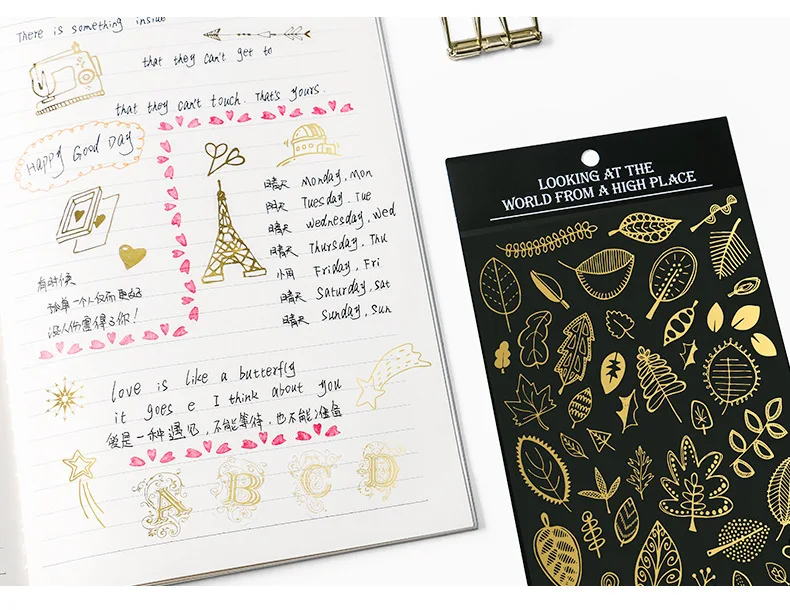 There is something inside
that they can't get to
that they can't touch. That's yours.
Happy Good Day
晴天 Monday, Mon
阴天 Tuesday, Tue
晴天 Wednesday, Wed
晴天 Thursday, Thu
小雨 Friday, Fri
晴天 Saturday, Sat
晴天 Sunday, Sun
有时候
孤单一个人仅而更好
没人伤害得了你!
love is like a butterfly
it goes e I think about you
爱是一种遇见,不能等待,也不能准备
A B C D
LOOKING AT THE
WORLD FROM A HIGH PLACE